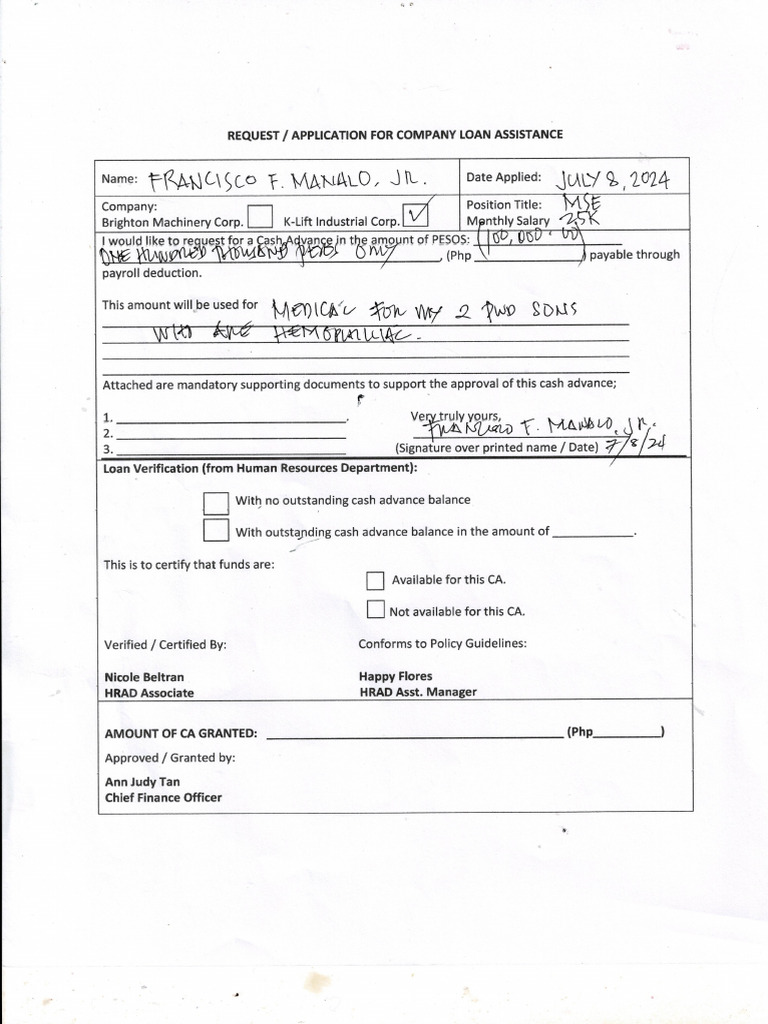 REQUEST / APPLICATION FOR COMPANY LOAN ASSISTANCE
Name: FRANCISCO F. MANALO, JR.
Date Applied: JULY 8, 2024
Company:
Brighton Machinery Corp. K-Lift Industrial Corp. ✓
Position Title: MSE
Monthly Salary 25K
I would like to request for a Cash Advance in the amount of PESOS:
ONE HUNDRED THOUSAND PESOS ONLY, (Php 100,000.00) payable through
payroll deduction.
This amount will be used for MEDICAL FOR MY 2 PWD SONS
WHO ARE HEMOPHILIAC.
Attached are mandatory supporting documents to support the approval of this cash advance;
1. .
2.
3.
Very truly yours,
FRANCISCO F. MANALO, JR.
(Signature over printed name / Date) 7/8/24
Loan Verification (from Human Resources Department):
With no outstanding cash advance balance
With outstanding cash advance balance in the amount of ____________.
This is to certify that funds are:
Available for this CA.
Not available for this CA.
Verified / Certified By:
Conforms to Policy Guidelines:
Nicole Beltran
HRAD Associate
Happy Flores
HRAD Asst. Manager
AMOUNT OF CA GRANTED: ____________ (Php__________)
Approved / Granted by:
Ann Judy Tan
Chief Finance Officer